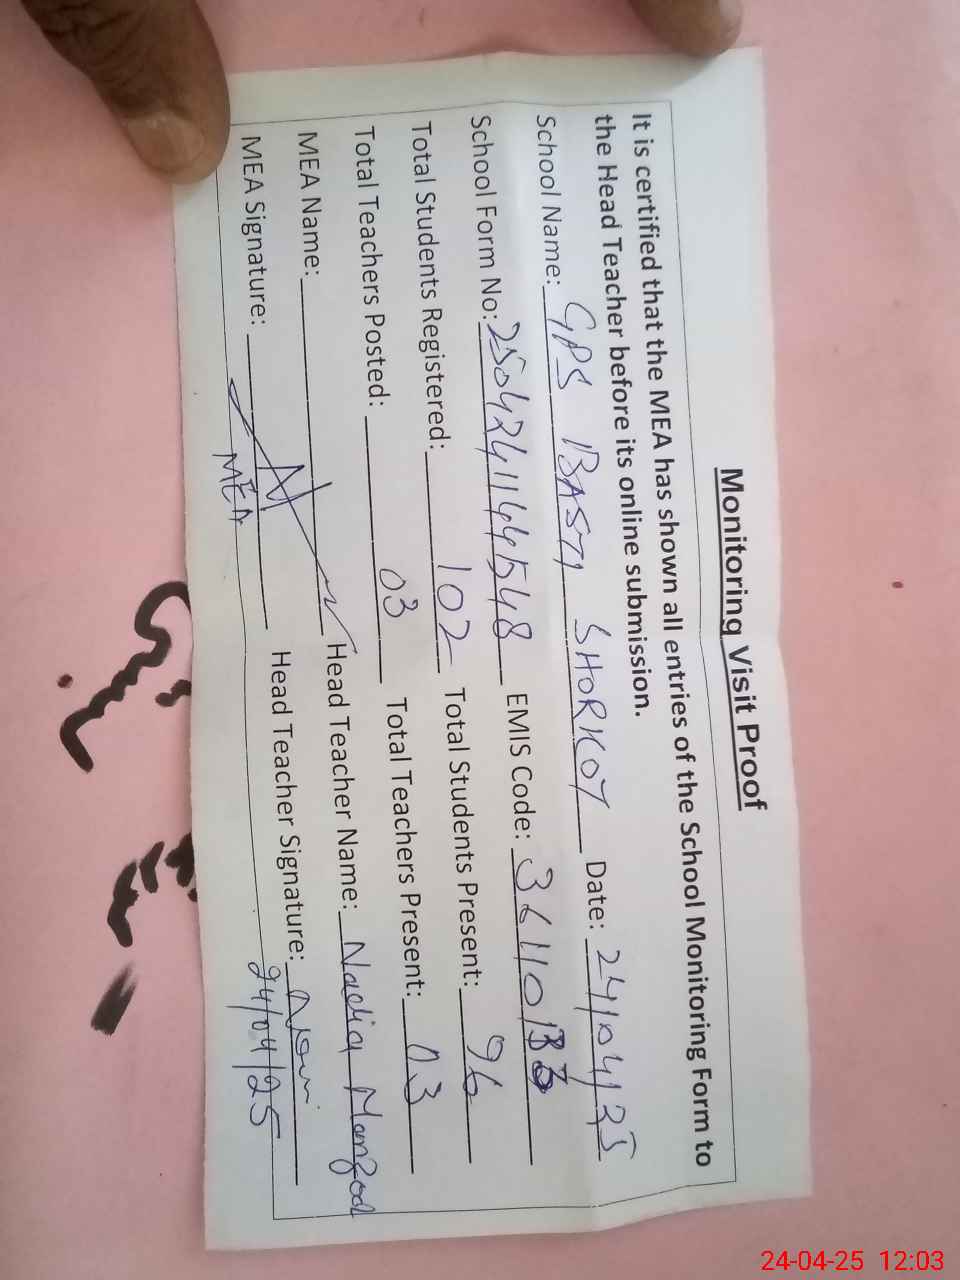 Monitoring Visit Proof
It is certified that the MEA has shown all entries of the School Monitoring Form to
the Head Teacher before its online submission.
School Name: GPS BASTI SHORKOT Date: 24/04/25
School Form No: 2504241144548 EMIS Code:
Total Students Registered: 102 Total Students Present: 96
Total Teachers Posted: 03 Total Teachers Present: 03
MEA Name: Head Teacher Name: Nadia
MEA Signature: Head Teacher Signature:
MEA 24/04/25
24-04-25 12:03